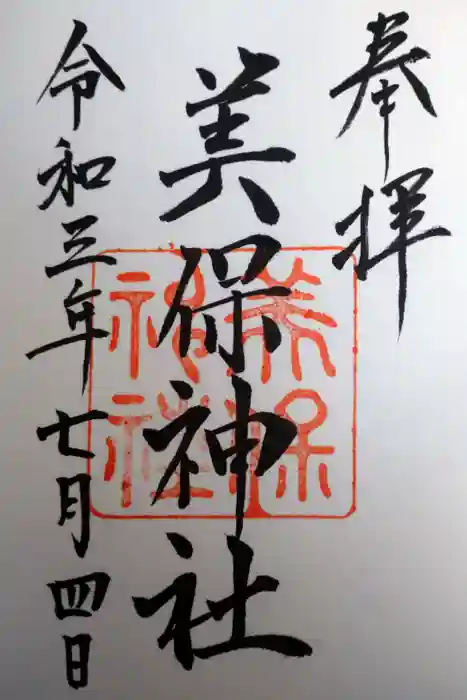 奉拝
美保神社
令和三年七月四日
美保
神社